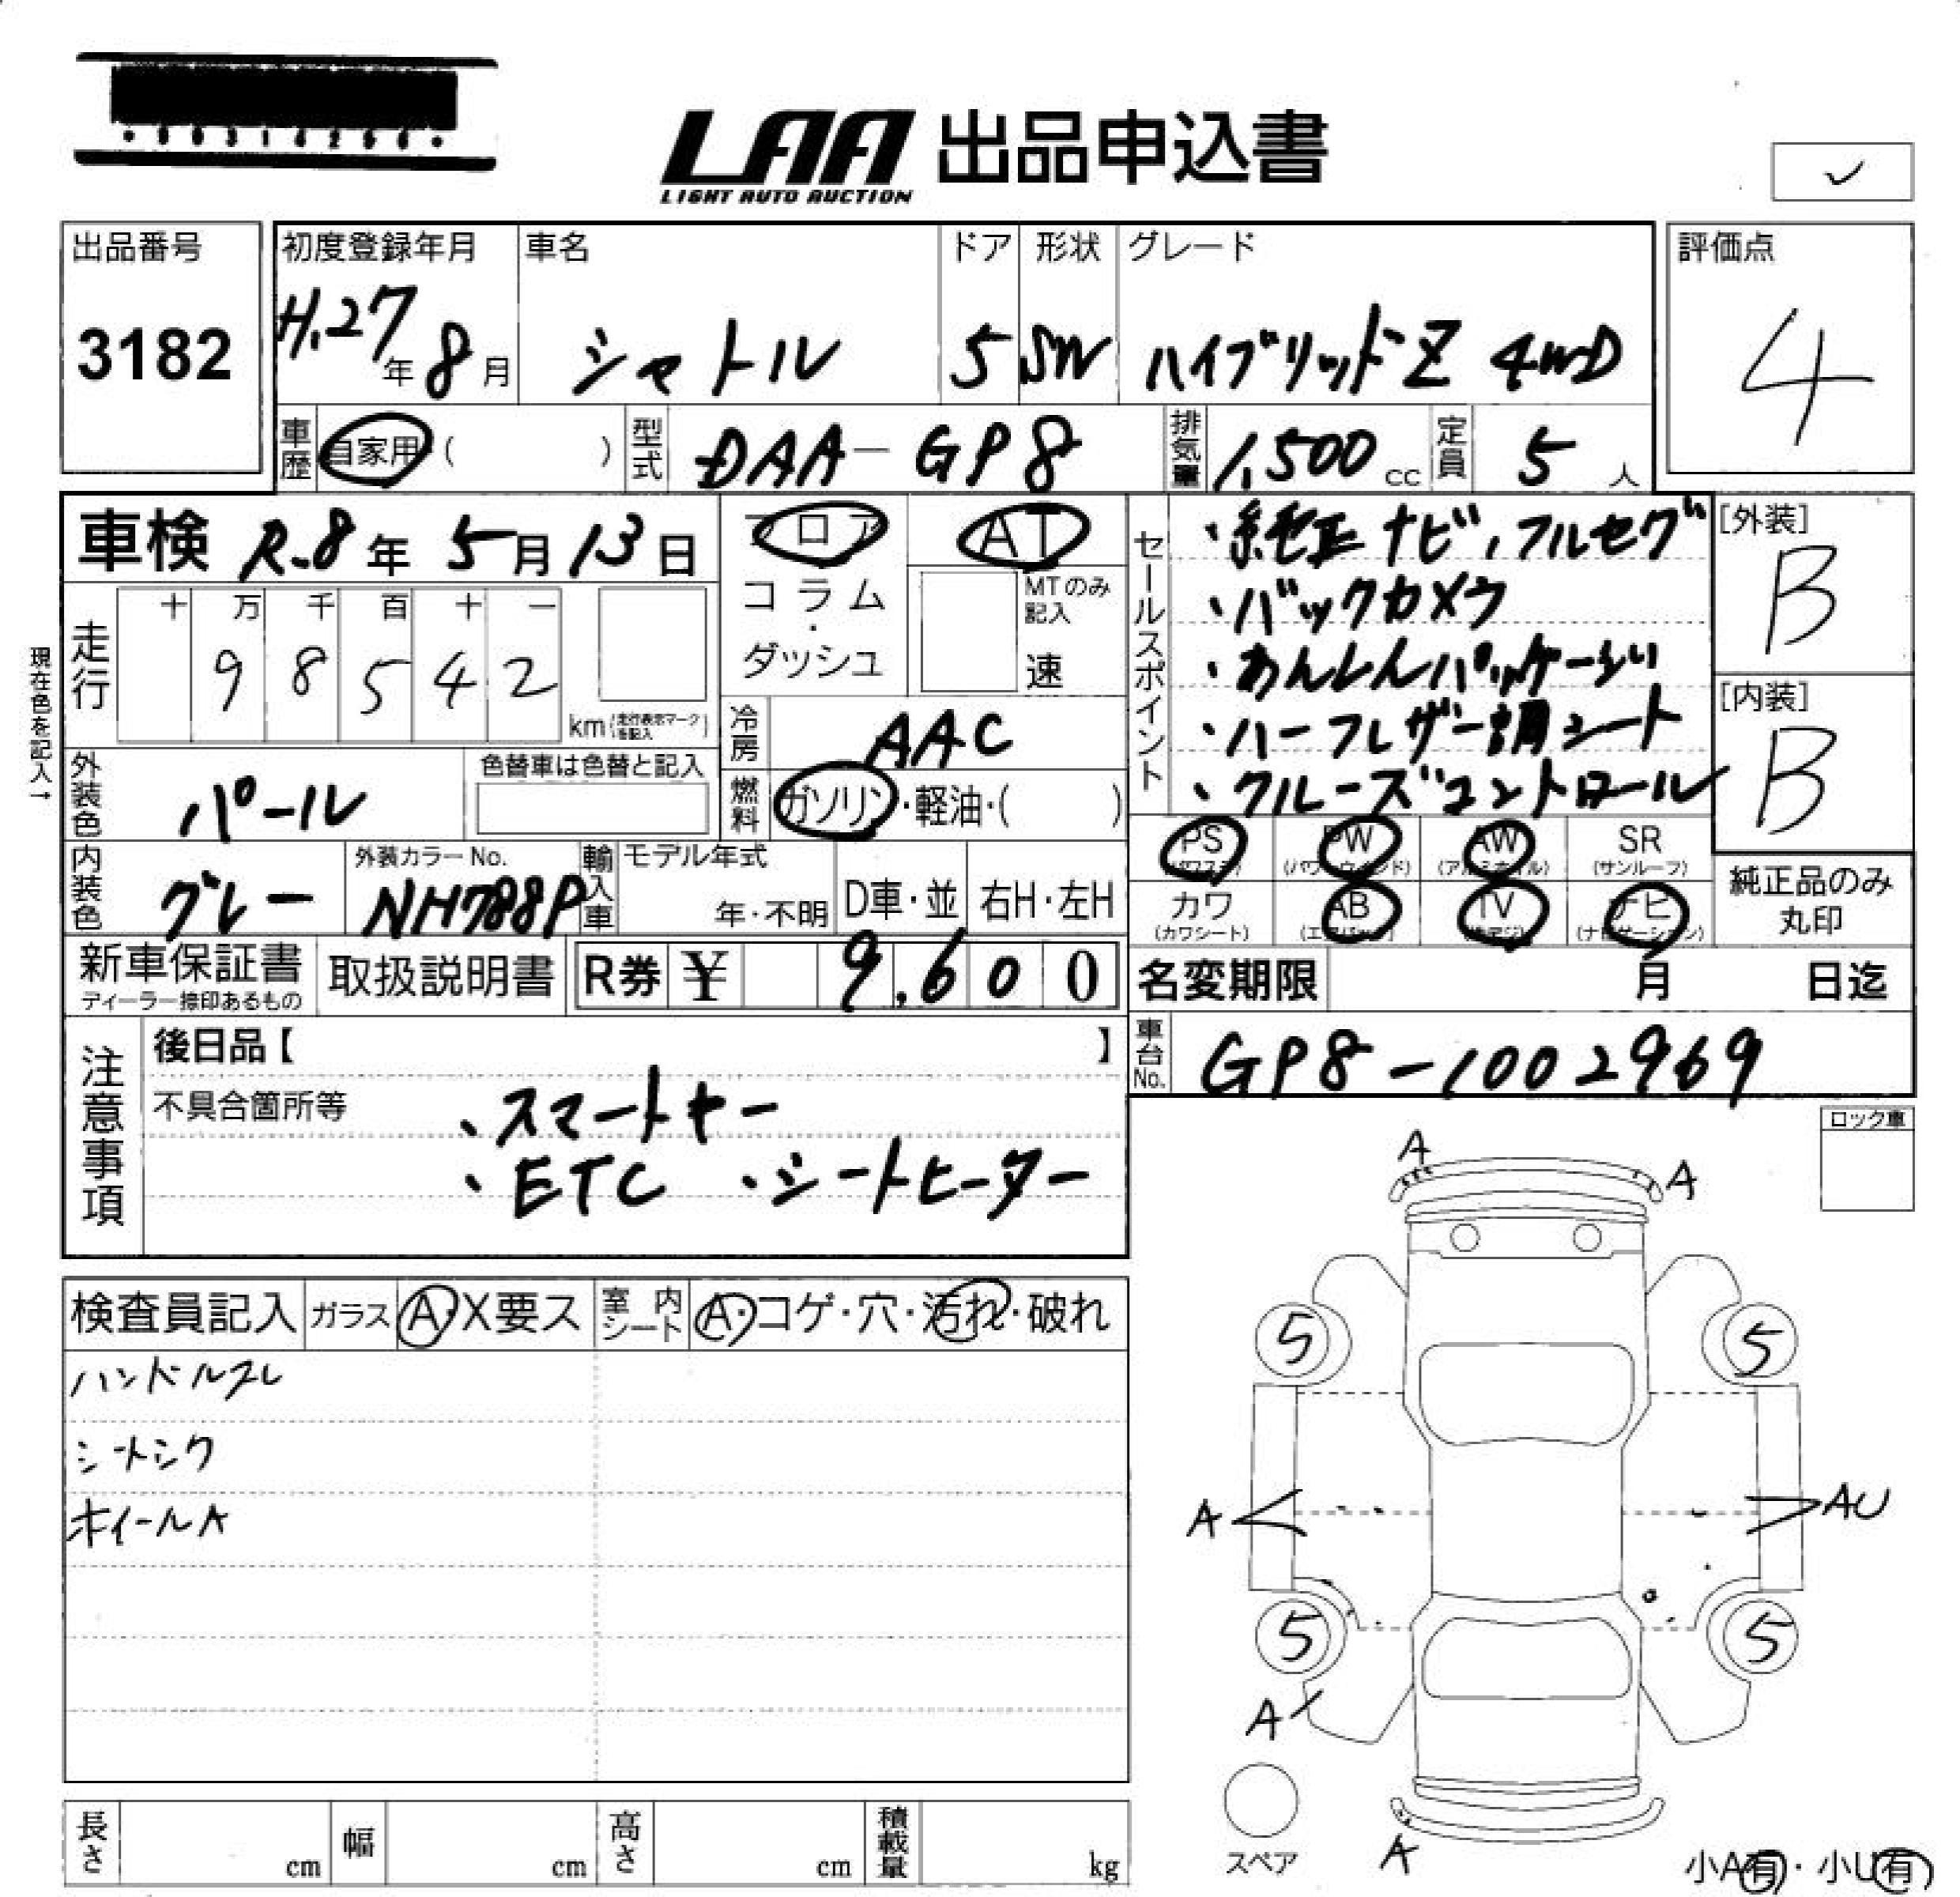 LAA 出品申込書
LIGHT AUTO AUCTION
✓
出品番号
3182
初度登録年月
H.27年 8月
車名
シャトル
ドア
5
形状
SW
グレード
ハイブリッドZ 4WD
評価点
4
車歴 自家用 ( )
型式 DAA-GP8
排気量 1,500 cc
定員 5 人
車検 R.8年 5月13日
フロア
コラム・
ダッシュ
AT
MTのみ記入
速
現在色を記入→
走行
十 万 千 百 十 一
9 8 5 4 2
km(走行表示マークを記入)
冷房 AAC
燃料 ガソリン・軽油・( )
外装色 パール
色替車は色替と記入
内装色 グレー
外装カラーNo.
NH788P
輸入車
モデル年式
年・不明
D車・並
右H・左H
セールスポイント
・純正ナビ,フルセグ
・バックカメラ
・あんしんパッケージ
・ハーフレザー調シート
・クルーズコントロール
[外装]
B
[内装]
B
PS (パワステ)
PW (パワーウインド)
AW (アルミホイル)
SR (サンルーフ)
カワ (カワシート)
AB (エアバッグ)
TV (地デジ)
ナビ (ナビゲーション)
純正品のみ
丸印
新車保証書
ディーラー捺印あるもの
取扱説明書
R券 ¥ 9,600
名変期限 月 日迄
車台No. GP8-1002969
注意事項
後日品【 】
不具合箇所等
・スマートキー
・ETC ・シートヒーター
ロック車
検査員記入
ガラス A・X要ス
室内シート A・コゲ・穴・汚れ・破れ
ハンドルスレ
シートシワ
ホイールA
A
A
5
5
A
AU
5
5
A
A
スペア
小A有・小U有
長さ cm
幅 cm
高さ cm
積載量 kg